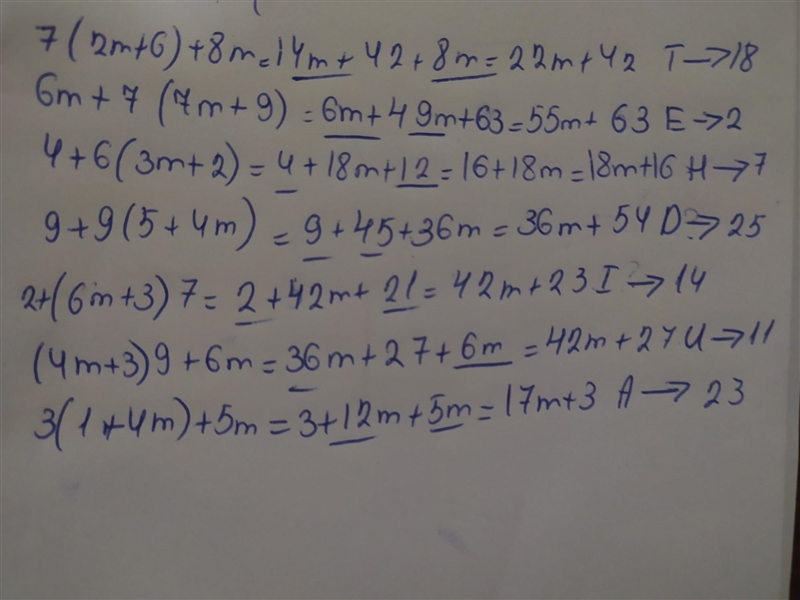 7(2m+6)+8m=14m+42+8m=22m+42 T→18
6m+7(7m+9)=6m+49m+63=55m+63 E→2
4+6(3m+2)=4+18m+12=16+18m=18m+16 H→7
9+9(5+4m)=9+45+36m=36m+54 D?→25
2+(6m+3)7=2+42m+21=42m+23 I?→14
(4m+3)9+6m=36m+27+6m=42m+27 U→11
3(1+4m)+5m=3+12m+5m=17m+3 A→23